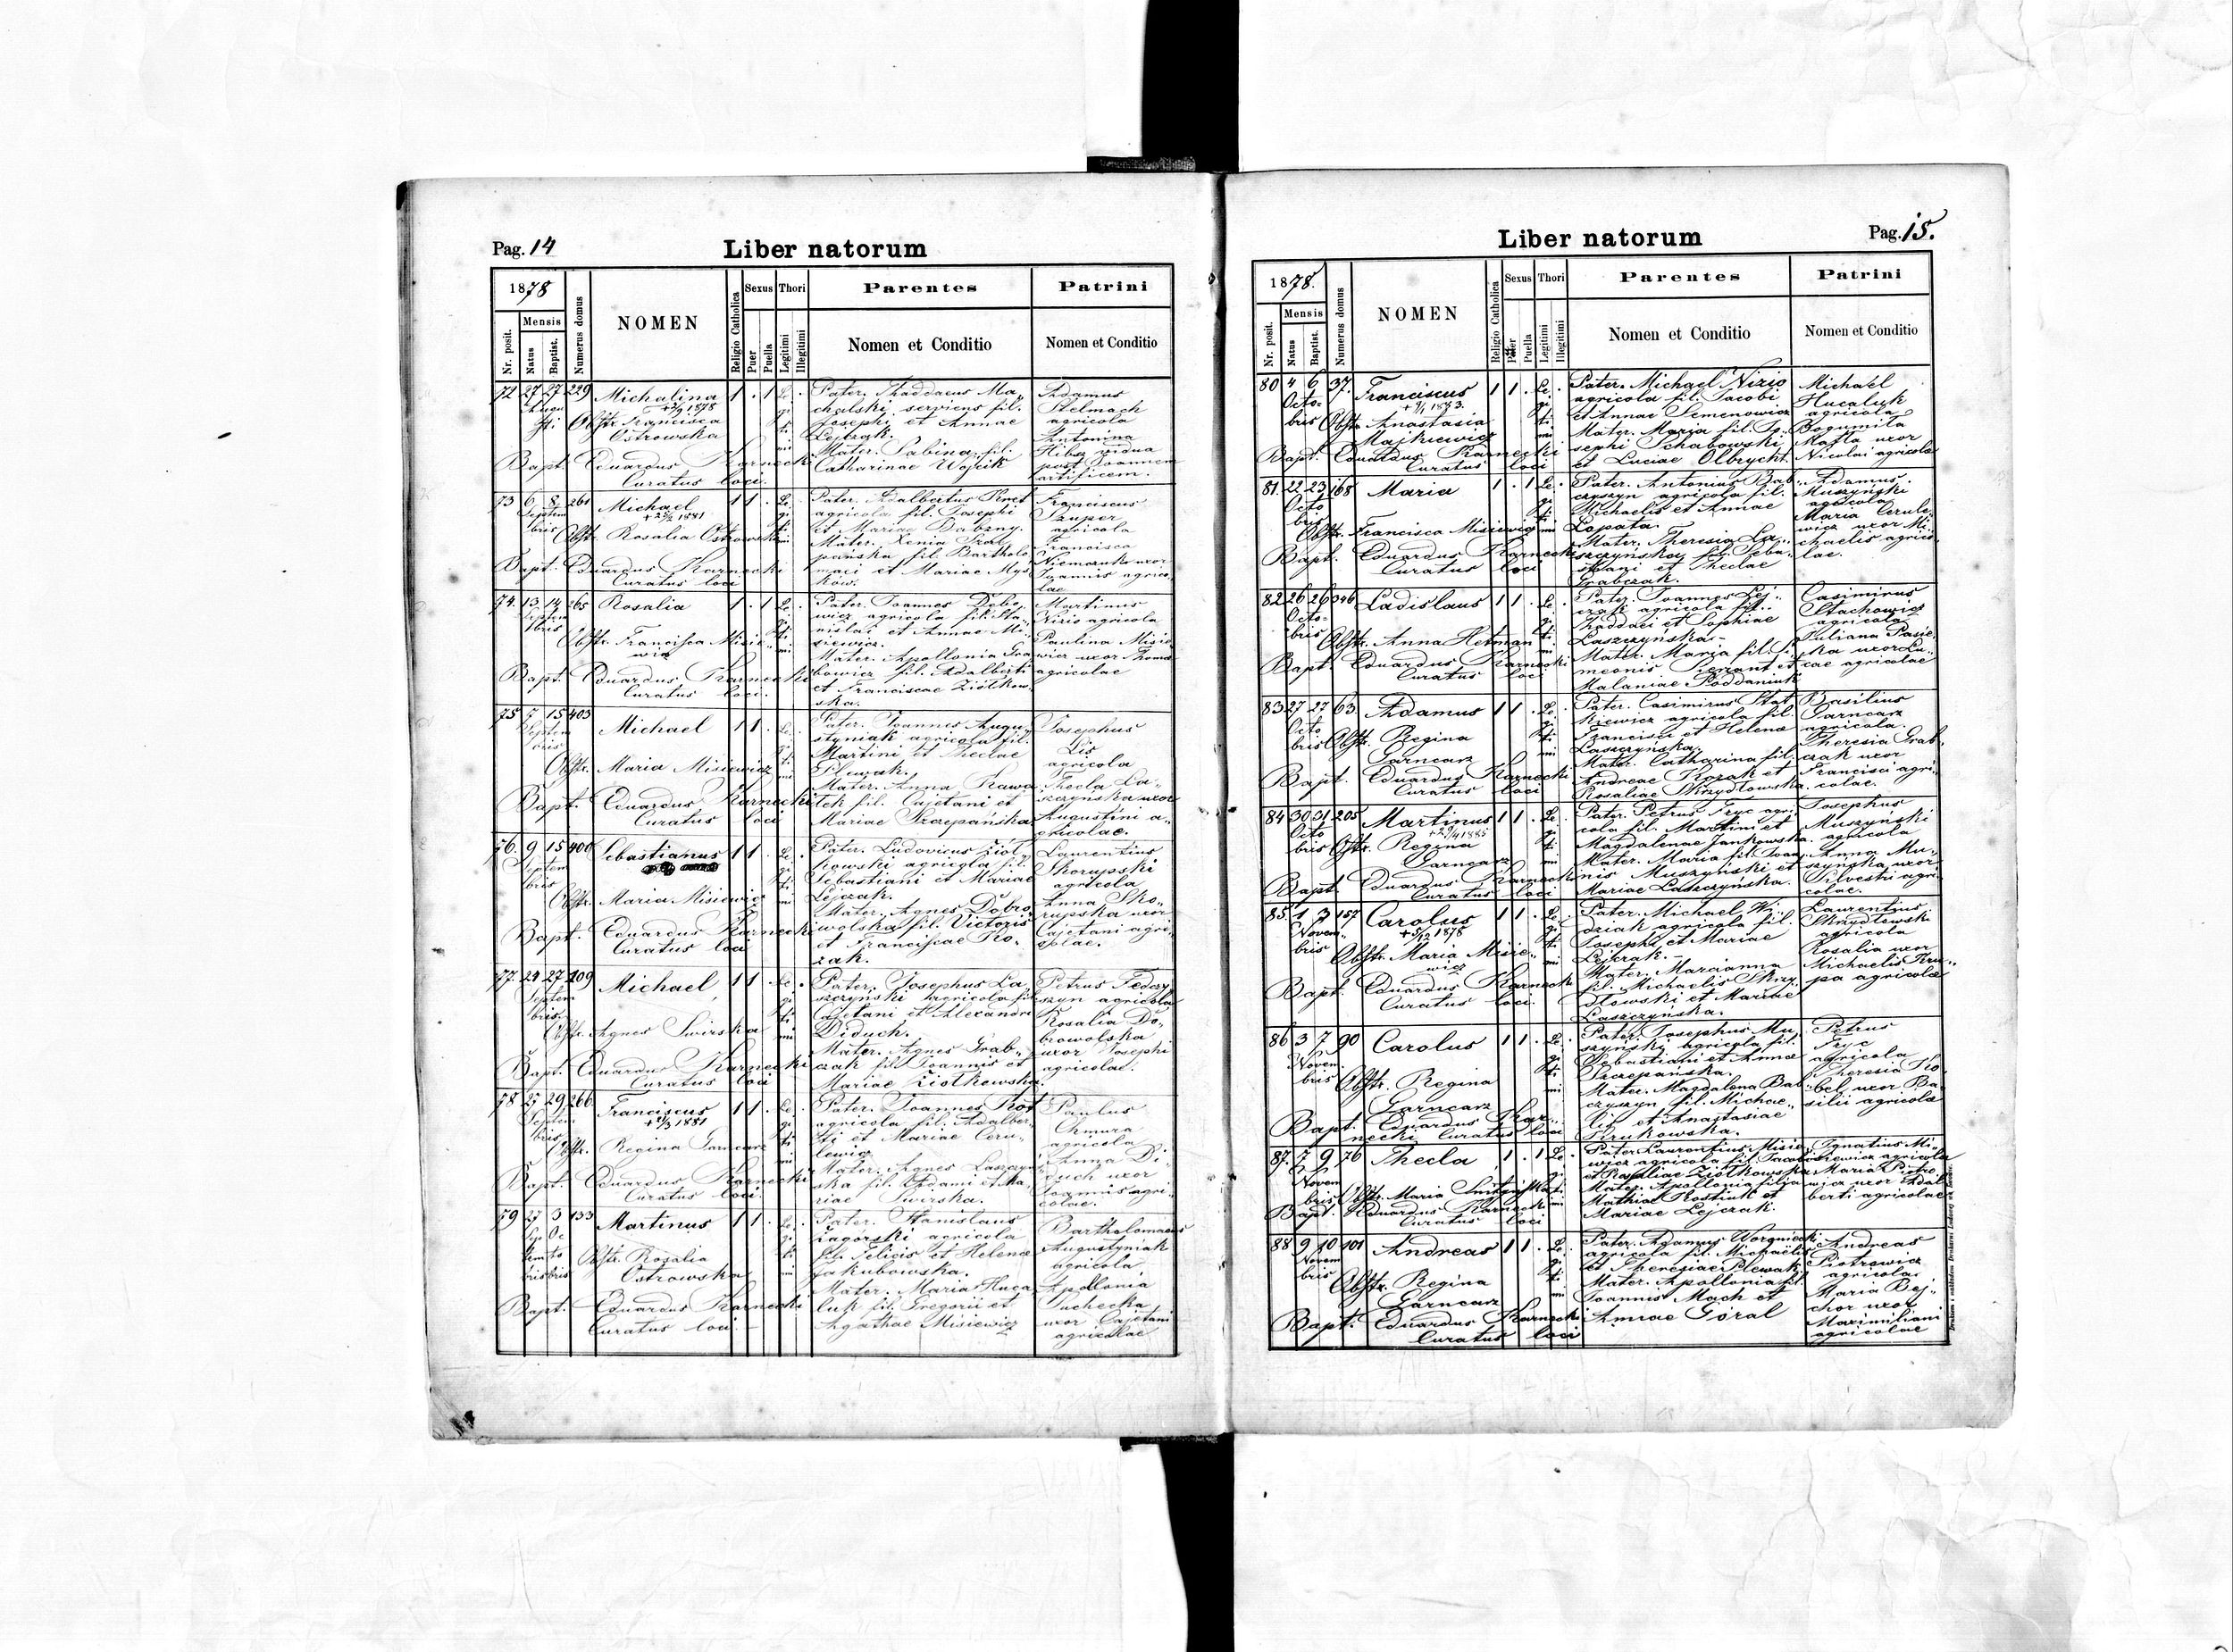 Pag. 14
Liber natorum
1878
Nr. posit.
Mensis
Natus
Baptist.
Numerus domus
NOMEN
Religio Catholica
Sexus
Puer
Puella
Thori
Legitimi
Illegitimi
Parentes
Nomen et Conditio
Patrini
Nomen et Conditio
72 27 27 229 Michalina 1 . 1 Le
Augusti
Obstr. Francisca
Ostrowska
Bapt. Eduardus Karnecki
Curatus loci.
Pater. Thaddaeus Ma
chalski serviens fil.
Josephi et Annae
Lejczak.
Mater. Sabina fil.
Catharinae Wojcik
Adamus
Stelmach
agricola
Antonina
vidua
post Joannem
artificem.
73 6 8 261 Michael 1 1 . Le
Septem
bris
Obstr. Rosalia Ostrowska
Bapt. Eduardus Karnecki
Curatus loci
Pater. Adalbertus
agricola fil. Josephi
et Mariae
Mater. Xenia
fil. Bartholo
maei et Mariae Mys
kow.
Franciscus
Szuper
agricola
Francisca
uxor
Joannis agrico
lae
74. 13 14 265 Rosalia 1 . 1 Le
Septem
bris
Obstr. Francisca Misie
wicz
Bapt. Eduardus Karnecki
Curatus loci.
Pater. Joannes
wicz agricola fil. Sta
nislai et Annae Mi
siewicz.
Mater. Apollonia Gra
bowicz fil. Adalberti
et Franciscae Ziółkow
ska.
Martinus
Nizio agricola
Paulina Misie
wicz uxor Thomae
agricolae
75 7 15 403 Michael 1 1 . Le
Septem
bris
Obstr. Maria Misiewicz
Bapt. Eduardus Karnecki
Curatus loci
Pater. Joannes Augu
styniak agricola fil.
Martini et Theclae
Plewak.
Mater. Anna
fil. Cajetani et
Mariae Szczepańska
Josephus
Lis
agricola
Thecla La
szczyńska uxor
Augustini a
gricolae.
76. 9 15 400 Sebastianus 1 1 . Le
Septem
bris
Obstr. Maria Misiewicz
Bapt. Eduardus Karnecki
Curatus loci
Pater. Ludovicus Ziół
kowski agricola fil.
Sebastiani et Mariae
Lejczak.
Mater. Agnes Dobro
wolska fil. Victoris
et Franciscae Ko
zak.
Laurentius
Skorupski
agricola
Anna Sko
rupska uxor
Cajetani agri
colae.
77. 24 27 109 Michael 1 1 . Le
Septem
bris.
Obstr. Agnes Swirska
Bapt. Eduardus Karnecki
Curatus loci
Pater. Josephus La
szczyński agricola fil.
Cajetani et Alexandrae
Diduch.
Mater. Agnes Grab
czak fil. Joannis et
Mariae Ziółkowska.
Petrus Fedczy
szyn agricola
Rosalia Do
browolska
uxor Josephi
agricolae.
78 25 29 266 Franciscus 1 1 . Le
Septem
bris
Obstr. Regina Garncarz
Bapt. Eduardus Karnecki
Curatus loci.
Pater. Joannes Kot
agricola fil. Adalber
ti et Mariae Ceru
lewicz
Mater. Agnes Laszczyń
ska fil. Adami et Ma
riae Swirska.
Paulus
Chmura
agricola
Anna Di
duch uxor
Joannis agri
colae.
79 27 3 133 Martinus 1 1 . Le
Obstr. Rosalia
Ostrowska
Bapt. Eduardus Karnecki
Curatus loci.
Pater. Stanislaus
Zagórski agricola
fil. Felicis et Helenae
Jakubowska.
Mater. Maria Huca
luk fil. Gregorii et
Agathae Misiewicz
Bartholomaeus
Augustyniak
agricola
Apollonia
Suchecka
uxor Cajetani
agricolae
Pag. 15.
Liber natorum
1878.
Nr. posit.
Mensis
Natus
Baptist.
Numerus domus
NOMEN
Religio Catholica
Sexus
Puer
Puella
Thori
Legitimi
Illegitimi
Parentes
Nomen et Conditio
Patrini
Nomen et Conditio
80 4 6 37. Franciscus 1 1 . Le
Octo
bris
Obstr. Anastasia
Majkiewicz
Bapt. Eduardus Karnecki
Curatus loci
Pater. Michael Nizio
agricola fil. Jacobi
et Annae Semenowicz
Mater. Maria fil. Jo
sephi Schabowski
et Luciae Olbrycht.
Michael
Hucaluk
agricola
Bogumila
Mafla uxor
Nicolai agricolae
81. 22 23 168 Maria 1 . 1 Le
Octo
bris
Obstr. Francisca Misiewicz
Bapt. Eduardus Karnecki
Curatus loci
Pater. Antonius Bab
czyszyn agricola fil.
Michaelis et Annae
Lopata.
Mater. Theresia La
szczyńska fil. Seba
stiani et Theclae
Grabczak.
Adamus
Muszyński
agricola
Maria Cerule
wicz uxor Mi
chaelis agrico
lae.
82 26 26 346 Ladislaus 1 1 . Le
Octo
bris
Obstr. Anna Hetman
Bapt. Eduardus Karnecki
Curatus loci
Pater. Joannes Lej
czak agricola fil.
Thaddaei et Sophiae
Laszczyńska.
Mater. Maria fil. Si
meonis et
Malaniae Poddaniuk
Casimirus
Stachowicz
agricola
Juliana Pasie
ka uxor Lu
cae agricolae
83 27 27 63 Adamus 1 1 . Le
Octo
bris
Obstr. Regina
Garncarz
Bapt. Eduardus Karnecki
Curatus loci
Pater. Casimirus Stat
kiewicz agricola fil.
Francisci et Helenae
Laszczyńska.
Mater. Catharina fil.
Andreae Kozak et
Rosaliae Skrzydlowska.
Basilius
Garncarz
agricola.
Theresia Grab
czak uxor
Francisci agri
colae.
84 30 31 205 Martinus 1 1 . Le
Octo
bris
Obstr. Regina
Garncarz
Bapt. Eduardus Karnecki
Curatus loci
Pater. Petrus Fryc agri
cola fil. Martini et
Magdalenae Jankowska.
Mater. Maria fil. Joan
nis Muszyński et
Mariae Laszczyńska.
Josephus
Muszyński
agricola
Anna Mu
szyńska uxor
Silvestri agri
colae.
85. 1 3 157 Carolus 1 1 . Le
Novem
bris
Obstr. Maria Misie
wicz
Bapt. Eduardus Karnecki
Curatus loci.
Pater. Michael Wi
dziak agricola fil.
Josephi et Mariae
Lejczak.
Mater. Marianna
fil. Michaelis Skrzy
dlowski et Mariae
Laszczyńska.
Laurentius
Skrzydlowski
agricola
Rosalia uxor
Michaelis Kru
pa agricolae
86 3 7 90 Carolus 1 1 . Le
Novem
bris
Obstr. Regina
Garncarz
Bapt. Eduardus Kar
necki Curatus loci
Pater. Josephus Mu
szyński agricola fil.
Sebastiani et Annae
Szczepańska.
Mater. Magdalena Bab
czyszyn fil. Michae
lis et Anastasiae
Krukowska.
Petrus
Fryc
agricola
Theresia Ko
bel uxor Ba
silii agricolae
87. 7 9 76 Thecla 1 . 1 Le
Novem
bris
Obstr. Maria
Bapt. Eduardus Karnecki
Curatus loci
Pater. Laurentius Misie
wicz agricola fil. Jacobi
et Rosaliae Ziółkowska
Mater. Apollonia filia
Mathiae Kostiuk et
Mariae Lejczak.
Ignatius Mi
siewicz agricola
Maria Piotro
wicz uxor Adal
berti agricolae
88 9 10 101 Andreas 1 1 . Le
Novem
bris
Obstr. Regina
Garncarz
Bapt. Eduardus Karnecki
Curatus loci
Pater. Adamus Worgniecki
agricola fil. Michaelis
et Theresiae Plewak
Mater. Apollonia fil.
Joannis Mach et
Annae Góral
Andreas
Piotrowicz
agricola
Maria Bej
chor uxor
Maximiliani
agricolae